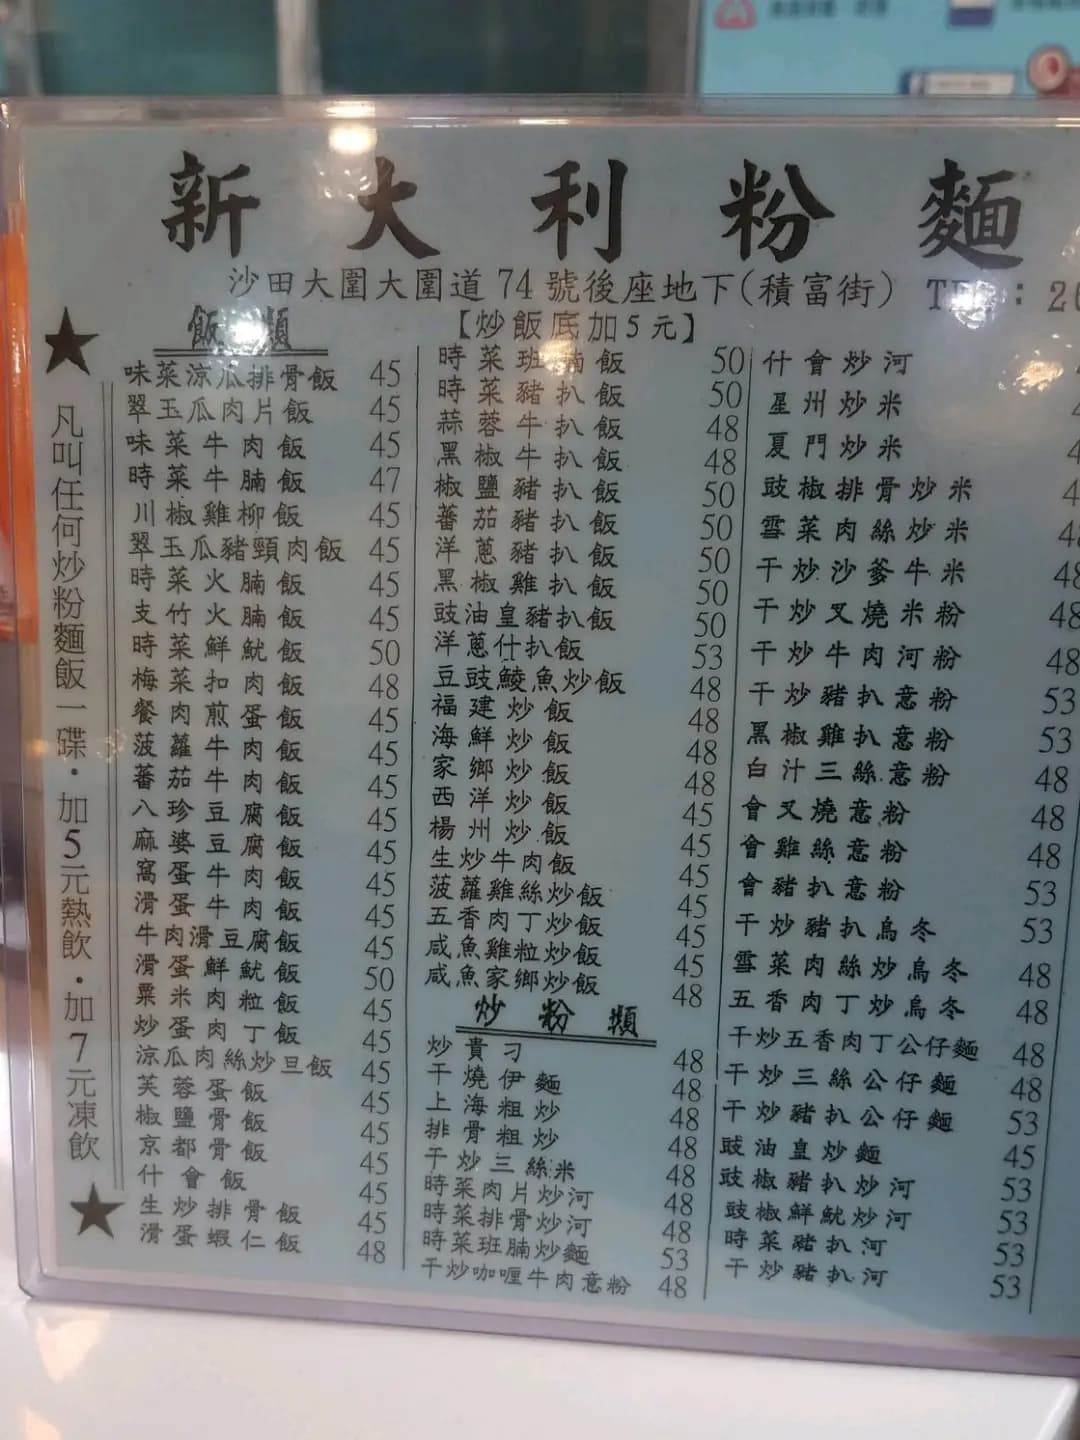 新大利粉麵
沙田大圍大圍道74號後座地下(積富街)
飯 類
【炒飯底加5元】
★
凡叫任何炒粉麵飯一碟·加5元熱飲·加7元凍飲
★
味菜涼瓜排骨飯 45
翠玉瓜肉片飯 45
味菜牛肉飯 45
時菜牛腩飯 47
川椒雞柳飯 45
翠玉瓜豬頸肉飯 45
時菜火腩飯 45
支竹火腩飯 45
時菜鮮魷飯 50
梅菜扣肉飯 48
餐肉煎蛋飯 45
菠蘿牛肉飯 45
蕃茄牛肉飯 45
八珍豆腐飯 45
麻婆豆腐飯 45
窩蛋牛肉飯 45
滑蛋牛肉飯 45
牛肉滑豆腐飯 45
滑蛋鮮魷飯 50
粟米肉粒飯 45
炒蛋肉丁飯 45
涼瓜肉絲炒旦飯 45
芙蓉蛋飯 45
椒鹽骨飯 45
京都骨飯 45
什會飯 45
生炒排骨飯 45
滑蛋蝦仁飯 48
時菜班腩飯 50
時菜豬扒飯 50
蒜蓉牛扒飯 48
黑椒牛扒飯 48
椒鹽豬扒飯 50
蕃茄豬扒飯 50
洋蔥豬扒飯 50
黑椒雞扒飯 50
豉油皇豬扒飯 50
洋蔥什扒飯 53
豆豉鯪魚炒飯 48
福建炒飯 48
海鮮炒飯 48
家鄉炒飯 48
西洋炒飯 45
楊州炒飯 45
生炒牛肉飯 45
菠蘿雞絲炒飯 45
五香肉丁炒飯 45
咸魚雞粒炒飯 45
咸魚家鄉炒飯 48
炒粉類
炒貴刁 48
干燒伊麵 48
上海粗炒 48
排骨粗炒 48
干炒三絲米 48
時菜肉片炒河 48
時菜排骨炒河 48
時菜班腩炒麵 53
干炒咖喱牛肉意粉 48
什會炒河
星州炒米
夏門炒米
豉椒排骨炒米
雪菜肉絲炒米
干炒沙爹牛米 48
干炒叉燒米粉 48
干炒牛肉河粉 48
干炒豬扒意粉 53
黑椒雞扒意粉 53
白汁三絲意粉 48
會叉燒意粉 48
會雞絲意粉 48
會豬扒意粉 53
干炒豬扒烏冬 53
雪菜肉絲炒烏冬 48
五香肉丁炒烏冬 48
干炒五香肉丁公仔麵 48
干炒三絲公仔麵 48
干炒豬扒公仔麵 53
豉油皇炒麵 45
豉椒豬扒炒河 53
豉椒鮮魷炒河 53
時菜豬扒河 53
干炒豬扒河 53